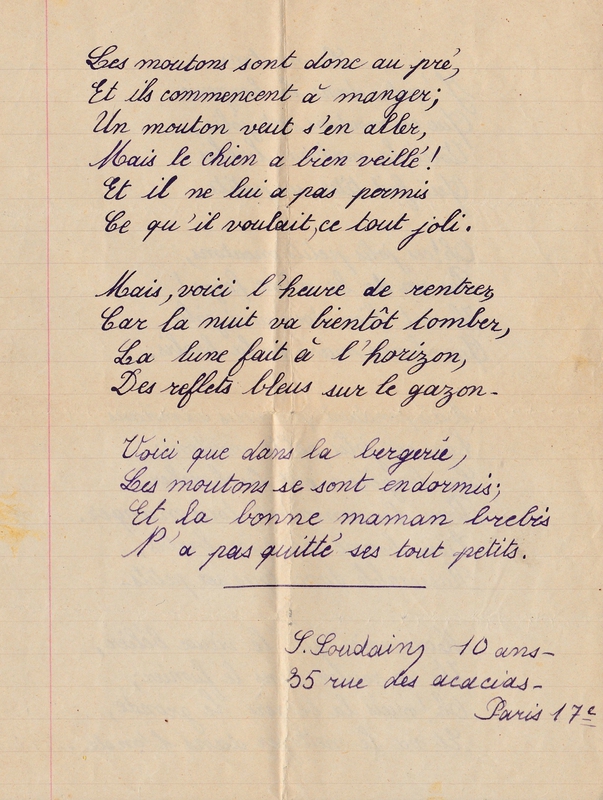 Les moutons sont donc au pré,
Et ils commencent à manger;
Un mouton veut s'en aller,
Mais le chien a bien veillé!
Et il ne lui a pas permis
Ce qu'il voulait, ce tout joli.
Mais, voici l'heure de rentrer,
Car la nuit va bientôt tomber,
La lune fait à l'horizon,
Des reflets bleus sur le gazon-
Voici que dans la bergerie,
Les moutons se sont endormis;
Et la bonne maman brebis
N'a pas quitté ses tout petits.
S. Soudain, 10 ans-
35 rue des acacias-
Paris 17e